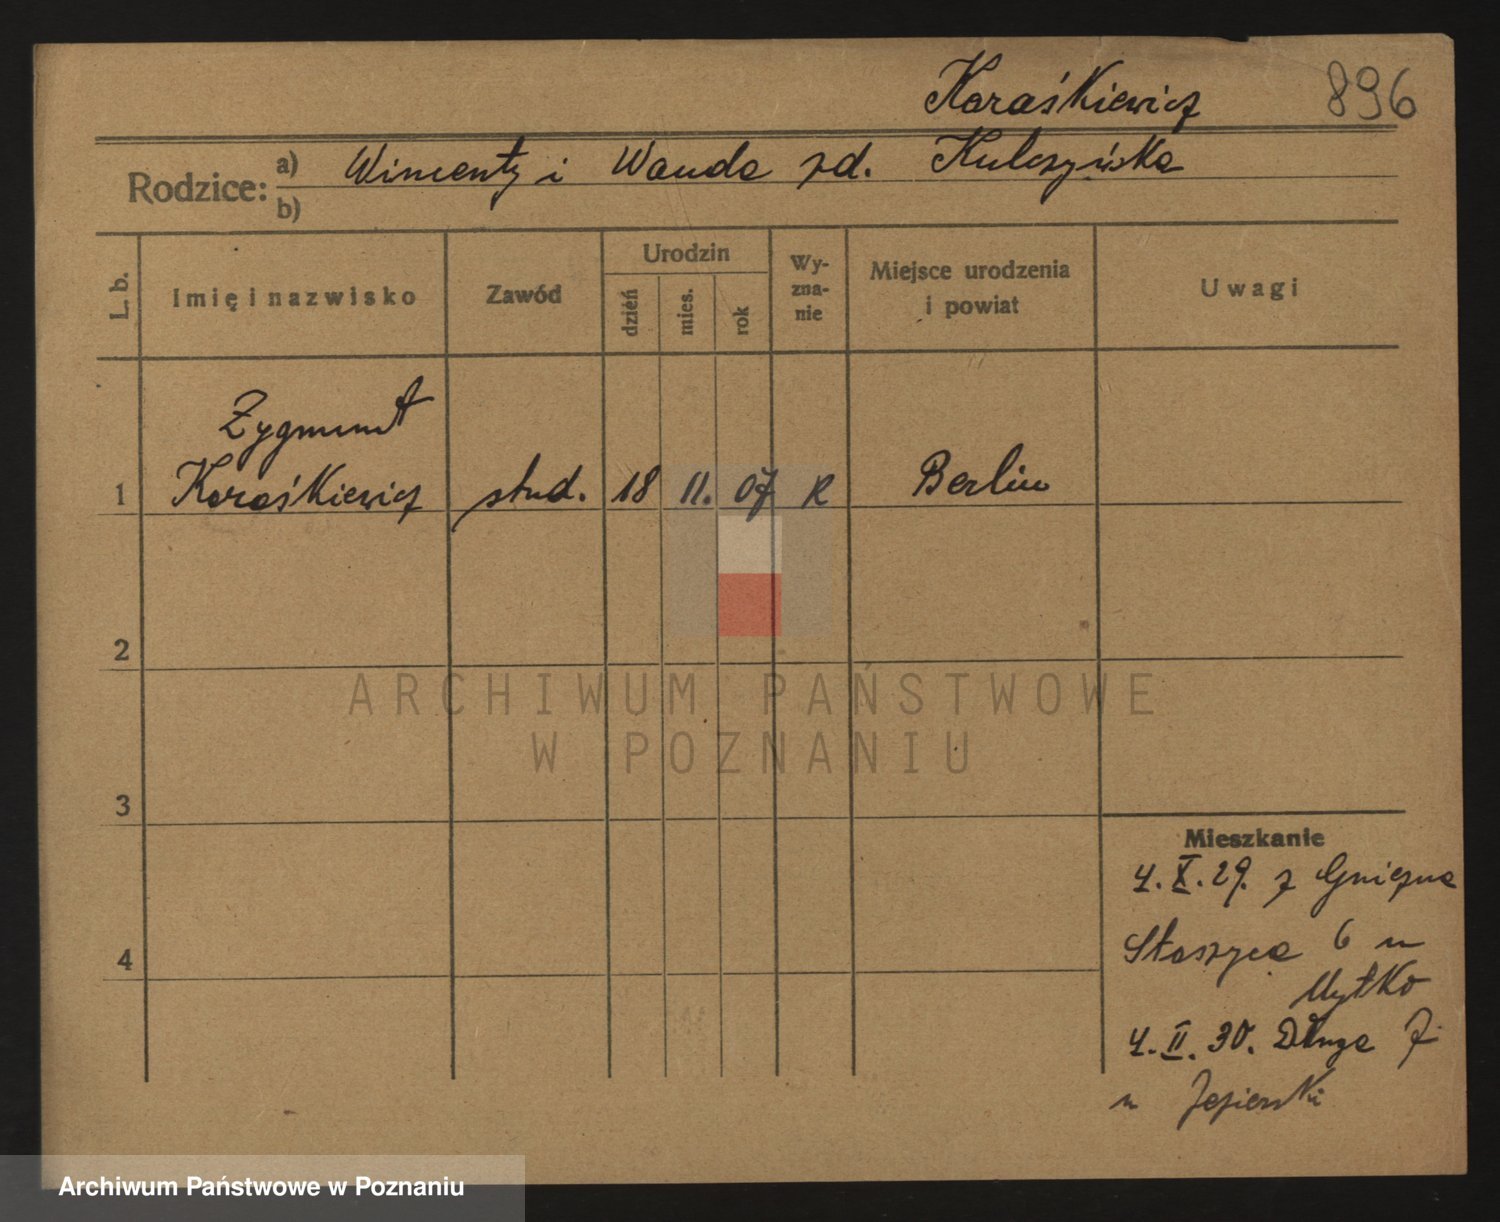 Karaśkiewicz 896
Rodzice: a) Wincenty i Wanda zd. Kulczyńska
b)
L. b. Imię i nazwisko Zawód Urodzin dzień mies. rok Wy-zna-nie Miejsce urodzenia i powiat Uwagi
Zygmunt
1 Karaśkiewicz stud. 18 11. 07 R Berlin
2
ARCHIWUM PAŃSTWOWE
W POZNANIU
3
Mieszkanie
4. X. 29. z Gniezna
Staszyca 6 u
4
4. II. 30. Długa 7
u Jezierski
Archiwum Państwowe w Poznaniu